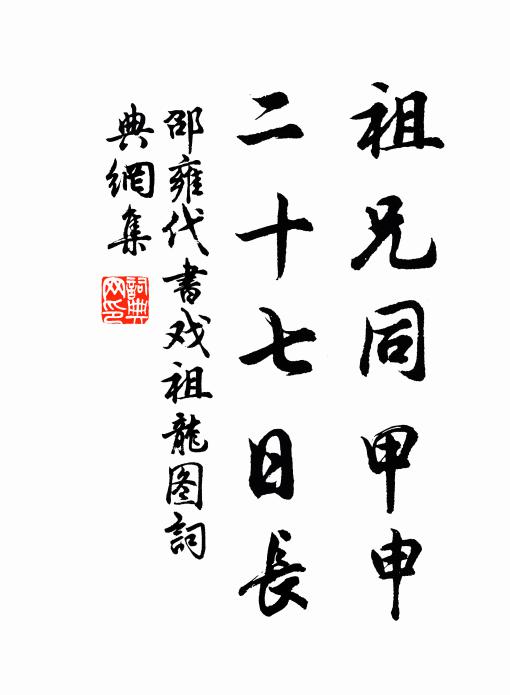 祖兄同甲申
二十七日長
邵雍代書戏祖龍图詞
典網集
詞典网印